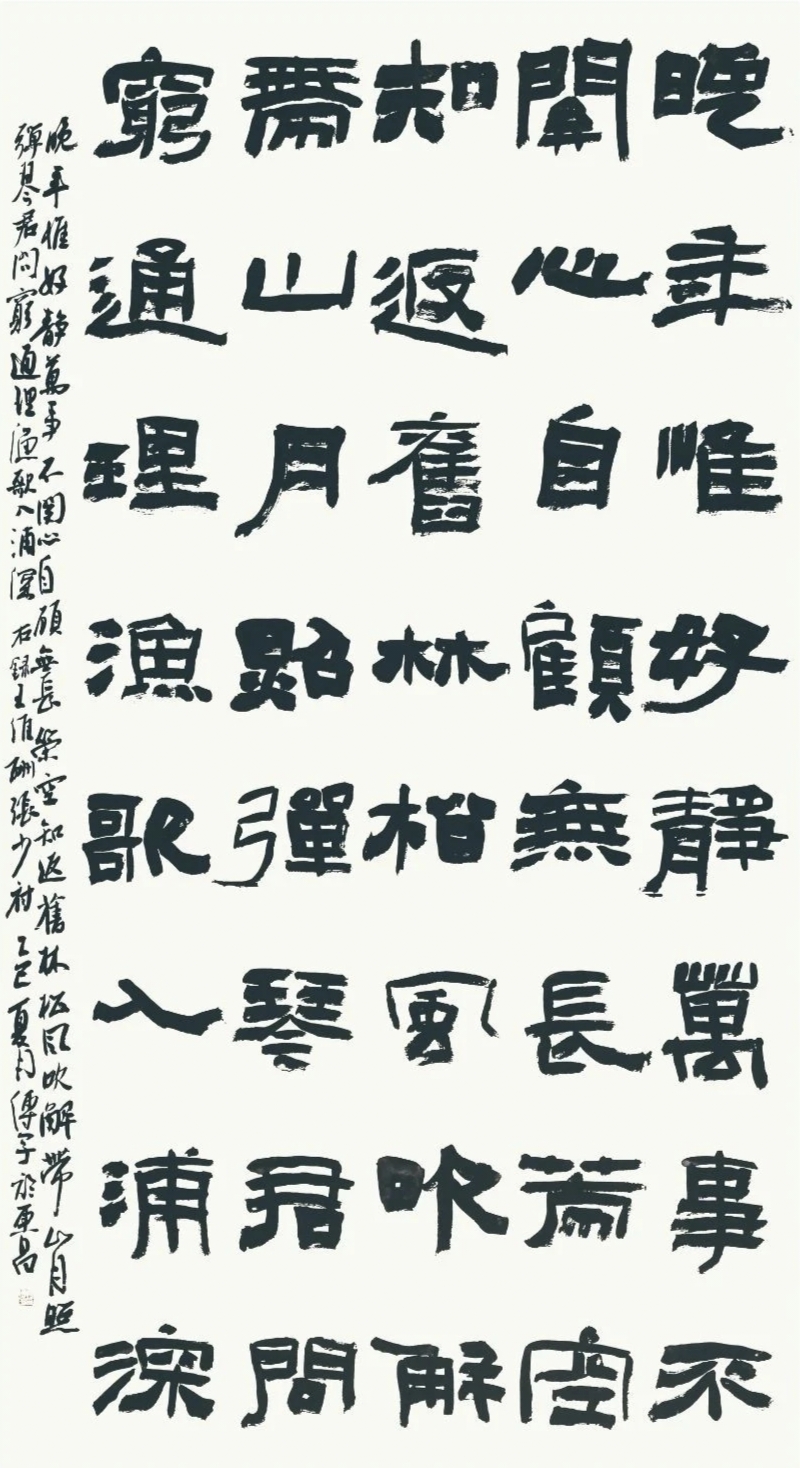 晚年惟好靜萬事不
關心自顧無長策空
知返舊林松風吹解
帶山月照彈琴君問
窮通理漁歌入浦深
晚年惟好静萬事不關心自顧無長策空知返舊林松風吹解帶山月照
彈琴君問窮通理漁歌入浦深 右録王維酬張少府 乙巳夏月傅子於